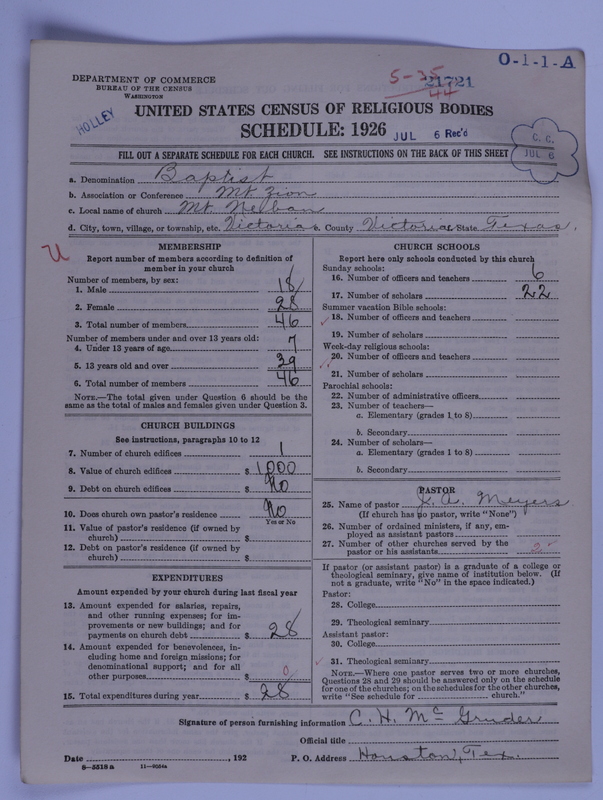 O-1-1-A
5-35
21721
44
DEPARTMENT OF COMMERCE
BUREAU OF THE CENSUS
WASHINGTON
HOLLEY
UNITED STATES CENSUS OF RELIGIOUS BODIES
SCHEDULE: 1926
JUL 6 Rec'd
C. C.
JUL 6
FILL OUT A SEPARATE SCHEDULE FOR EACH CHURCH. SEE INSTRUCTIONS ON THE BACK OF THIS SHEET
a. Denomination Baptist
b. Association or Conference Mt Zion
c. Local name of church Mt.
d. City, town, village, or township, etc. Victoria b. County Victoria State Texas.
U
MEMBERSHIP
Report number of members according to definition of
member in your church
Number of members, by sex:
1. Male 18
2. Female 28
3. Total number of members 46
Number of members under and over 13 years old:
4. Under 13 years of age 7
5. 13 years old and over 39
6. Total number of members 46
NOTE.—The total given under Question 6 should be the
same as the total of males and females given under Question 3.
CHURCH BUILDINGS
See instructions, paragraphs 10 to 12
7. Number of church edifices 1
8. Value of church edifices $ 1000
9. Debt on church edifices $ No
10. Does church own pastor's residence? No
Yes or No
11. Value of pastor's residence (if owned by
church) $
12. Debt on pastor's residence (if owned by
church) $
EXPENDITURES
Amount expended by your church during last fiscal year
13. Amount expended for salaries, repairs,
and other running expenses; for im-
provements or new buildings; and for
payments on church debt $ 28
14. Amount expended for benevolences, in-
cluding home and foreign missions; for
denominational support; and for all
other purposes $ 0
15. Total expenditures during year $ 28
CHURCH SCHOOLS
Report here only schools conducted by this church
Sunday schools:
16. Number of officers and teachers 6
17. Number of scholars 22
Summer vacation Bible schools:
18. Number of officers and teachers
19. Number of scholars
Week-day religious schools:
20. Number of officers and teachers
21. Number of scholars
Parochial schools:
22. Number of administrative officers
23. Number of teachers—
a. Elementary (grades 1 to 8)
b. Secondary
24. Number of scholars—
a. Elementary (grades 1 to 8)
b. Secondary
PASTOR
25. Name of pastor A. Meyers
(If church has no pastor, write "None")
26. Number of ordained ministers, if any, em-
ployed as assistant pastors
27. Number of other churches served by the
pastor or his assistants 2
If pastor (or assistant pastor) is a graduate of a college or
theological seminary, give name of institution below. (If
not a graduate, write "No" in the space indicated.)
Pastor:
28. College
29. Theological seminary
Assistant pastor:
30. College
31. Theological seminary
NOTE.—Where one pastor serves two or more churches,
Questions 28 and 29 should be answered only on the schedule
for one of the churches; on the schedules for the other churches,
write "See schedule for church."
Signature of person furnishing information C. H. McGruder
Official title
Date , 192 P. O. Address Houston, Tex.
8-5518 a 11-9254a